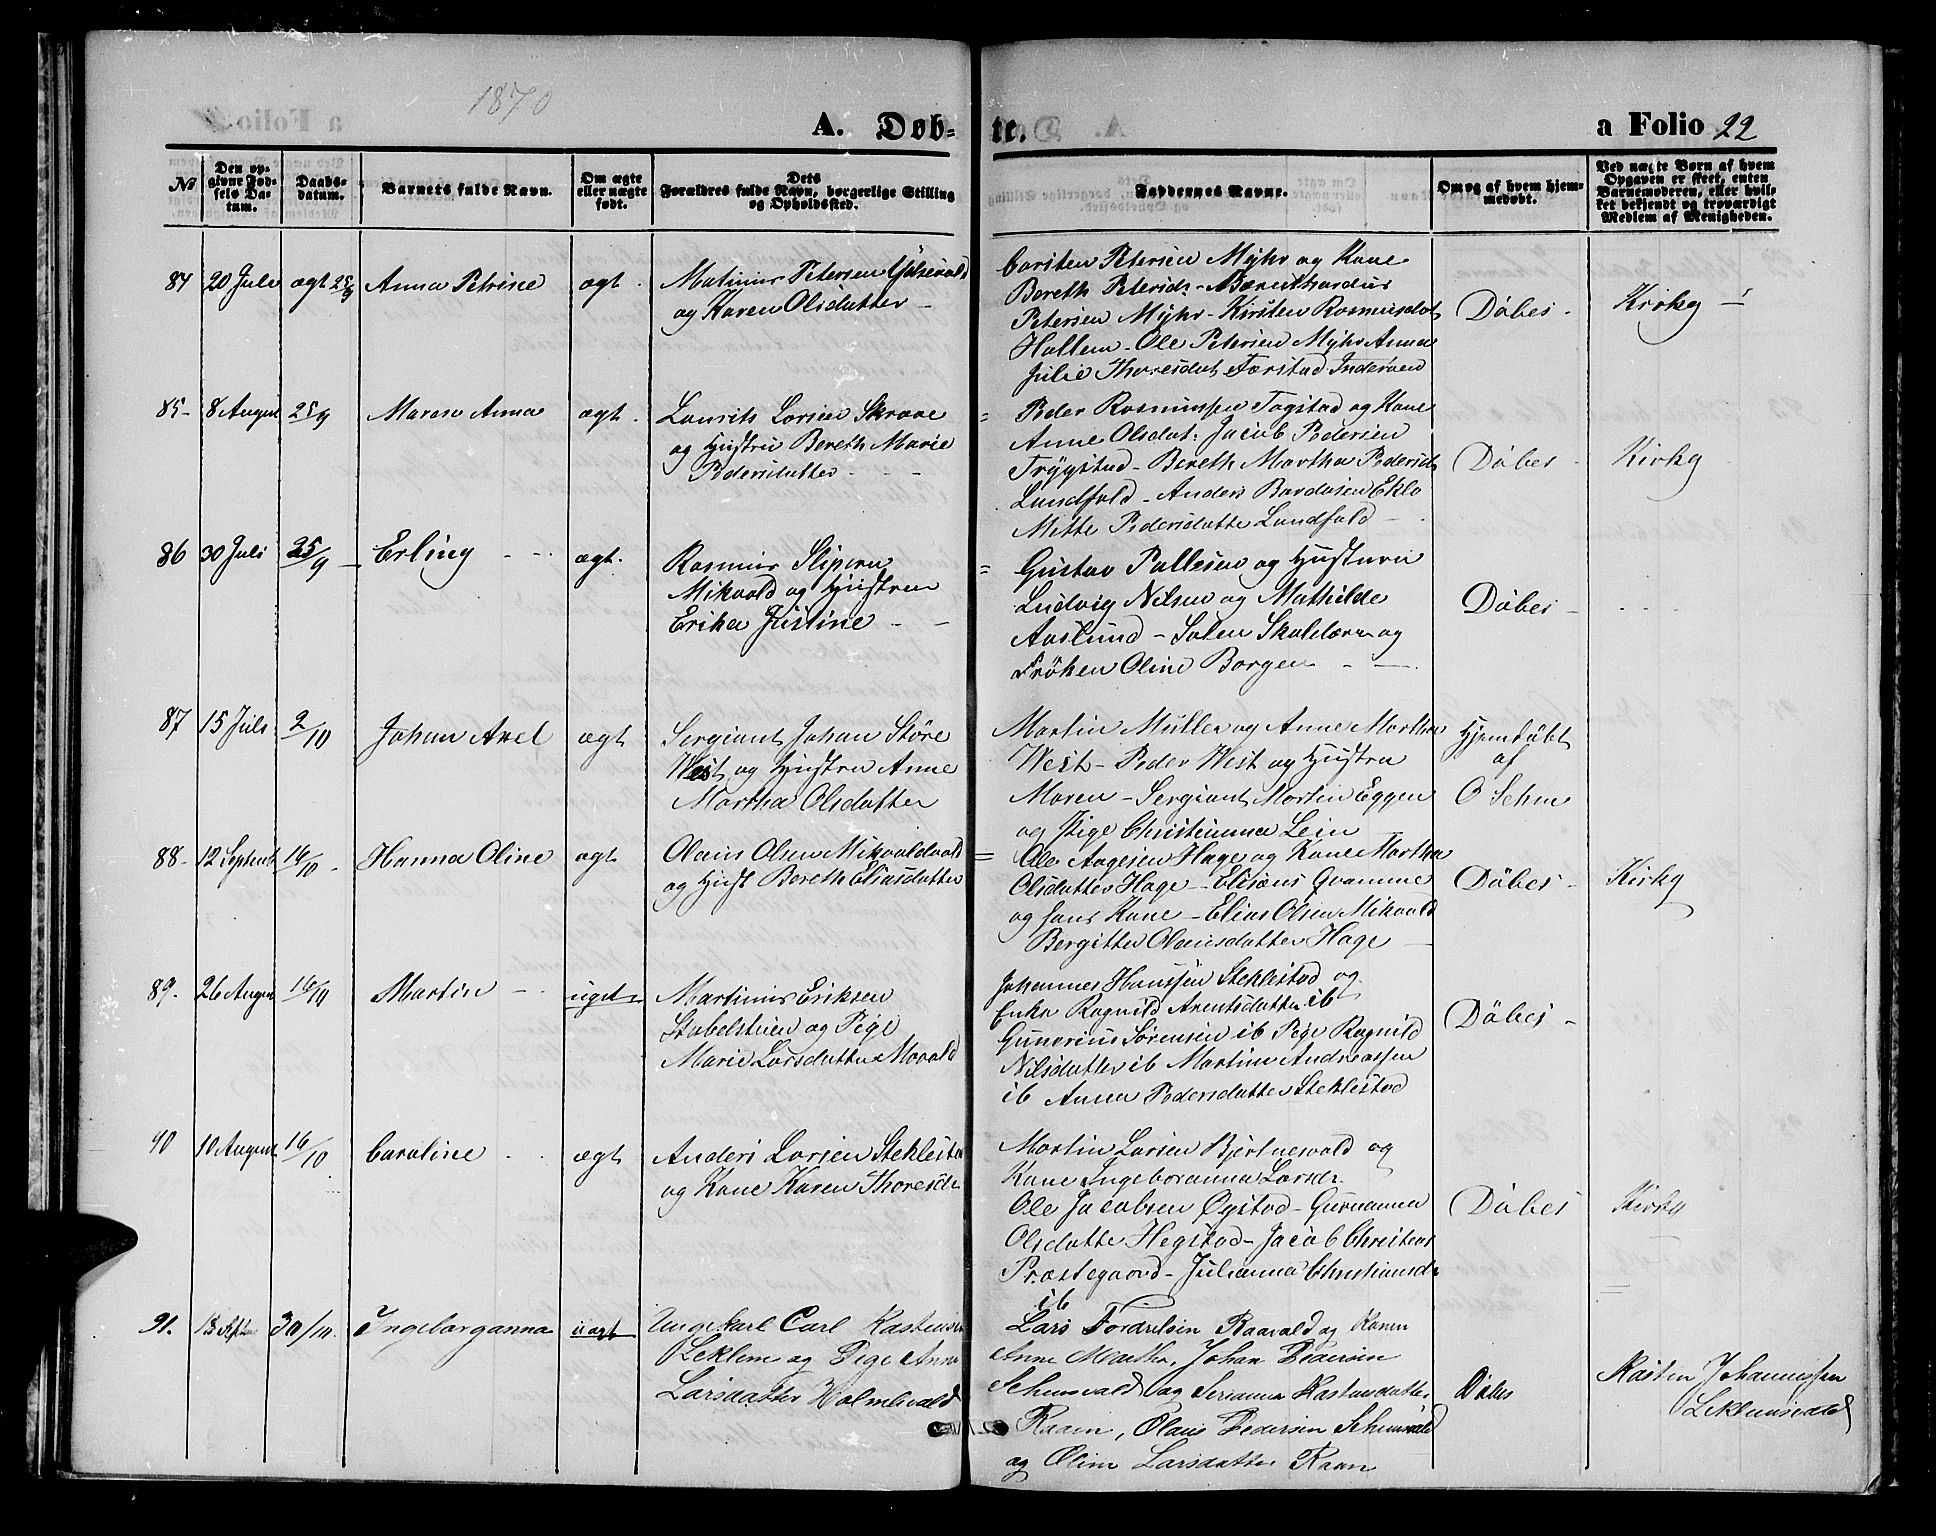 1870
A. Døb-
te.
a Folio 22
No
Den op-
givne Fød-
sels Da-
tum.
Daabs-
datum.
Barnets fulde Navn.
Om ægte
eller uægte
født.
Dets
Forældres fulde Navn, borgerlige Stilling
og Opholdssted.
Faddernes Navne.
Om og af hvem hjem-
medøbt.
Ved uægte Børn af hvem
Opgaven er skeet, enten
Barnemoderen, eller hvil-
ket bekjendt og troværdigt
Medlem af Menigheden.
84 20 Juli ægt 25/9 Anna Petrine ægt.
Matinus Petersen
og Karen Olsdatter
Carsten Petersen Myhr og Kone
Bereth Petersd.
Petersen Myhr - Kirsten Rasmusdat
Hallem - Ole Petersen Myhr Anna
Julie Thoresdat Færstad Inderøen
Døbes - Kirkg
85- 8 August 25/9 Maren Anna ægt.
Laurits Larsen Skraae
og Hustru Bereth Marie
Pedersdatter
Peder Rasmussen Tagstad og Kone
Anne Olsdat: Jacob Pedersen
Trygstad - Bereth Martha Pedersd
Lundfald - Anders Bardosen Eklo
Mette Pedersdatte Lundfald -
Døbes - Kirkg
86 30 Juli 25/9 Erling ægt.
Rasmus Slipern
Mikvold og Hustrue
Erika Justine
Gustav Pallesen og Hustrue
Ludvig Nilsen og Mathilde
Aaslund - Salen Skolelærer og
Frøken Oline Borgen
Døbes -
87 15 Juli 2/10 Johan Axel ægt
Sergiant Johan Støre
West og Hustru Anne
Martha Olsdatter
Martin Müller og Anne Martha
West - Peder West og Hustru
Maren - Sergiant Martin Eggen
og Pige Christianna Lein
Hjemdøbt
af
O Sehm
88- 12 Septenb 16/10 Hanna Oline ægt
Olaus Olsen Mikvoldvald
og Hust Bereth Eliasdatter
Ole Aagesen Hage og Kone Martha
Olsdatter Hage - Elisæus Qvamme
og hans Kone - Elias Olsen Mikvold
Bergitte Olausdatter Hage
Døbes - Kirkg
89. 26 August 16/10 Martin uægt
Martinus Eriksen
Stabelstuen og Pige
Marie Larsdatter Hovald
Johannes Hanssen Steklestad og
Enke Ragnild Arentsdatter ib
Gunerius Sørensen ib Pige Ragnild
Nilsdatter ib Martin Andreassen
ib Anna Pedersdatter Steklestad
Døbes -
90 10 August 16/10 Caroline ægt
Anders Larsen Steklestad
og Kone Karen Thoresdr
Martin Larsen Bjertnesvald og
Kone Ingeboranna Larsdr.
Ole Jacobsen Øgstad - Guruanna
Olsdatte Hegstad - Jacob Christens
Præstegaard - Julianna Christiansdr
ib
Døbes Kirkg
91. 13 Septbr 30/10. Ingeborganna uægt
Ungekarl Carl Rastensen
Leklem og Pige Anne
Larsdatter Holmlivald
Lars Fordelsen Raavald og Konen
Anne Martha, Johan Pedersen
Sehmsvald og Serianna Rastensdatter
Raaen, Olaus Pedersen Sehmsvald
og Oline Larsdatter Raaen
Døbes
Rasten Johannessen
Leklemsvald